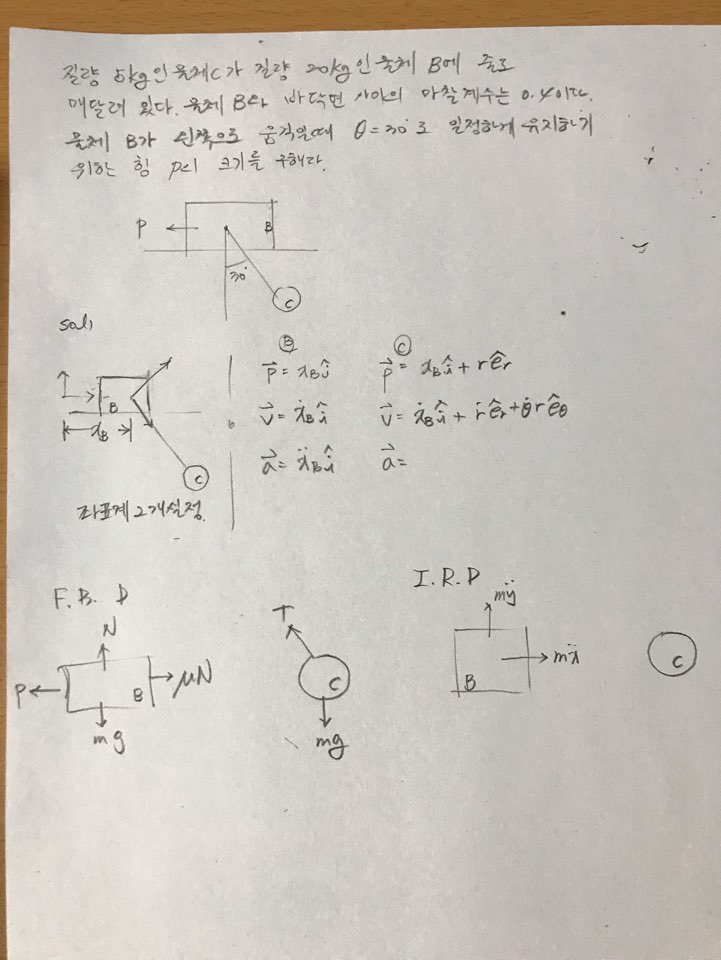 질량 5kg인 물체C가 질량 20kg인 물체 B에 줄로
매달려 있다. 물체 B와 바닥면 사이의 마찰계수는 0.4이다.
물체 B가 왼쪽으로 움직일때 θ=30°로 일정하게 유지하기
위하는 힘 P의 크기를 구해라.
P B
30°
C
sol)
B
x_B
C
좌표계 2개설정.
Ⓑ
p⃗ = x_B î
v⃗ = ẋ_B î
a⃗ = ẍ_B î
Ⓒ
p⃗ = x_B î + r ê_r
v⃗ = ẋ_B î + ṙ ê_r + θ̇ r ê_θ
a⃗ =
F. B. D
N
P B μN
mg
T
C
mg
I. R. D
mÿ
B mẍ
C